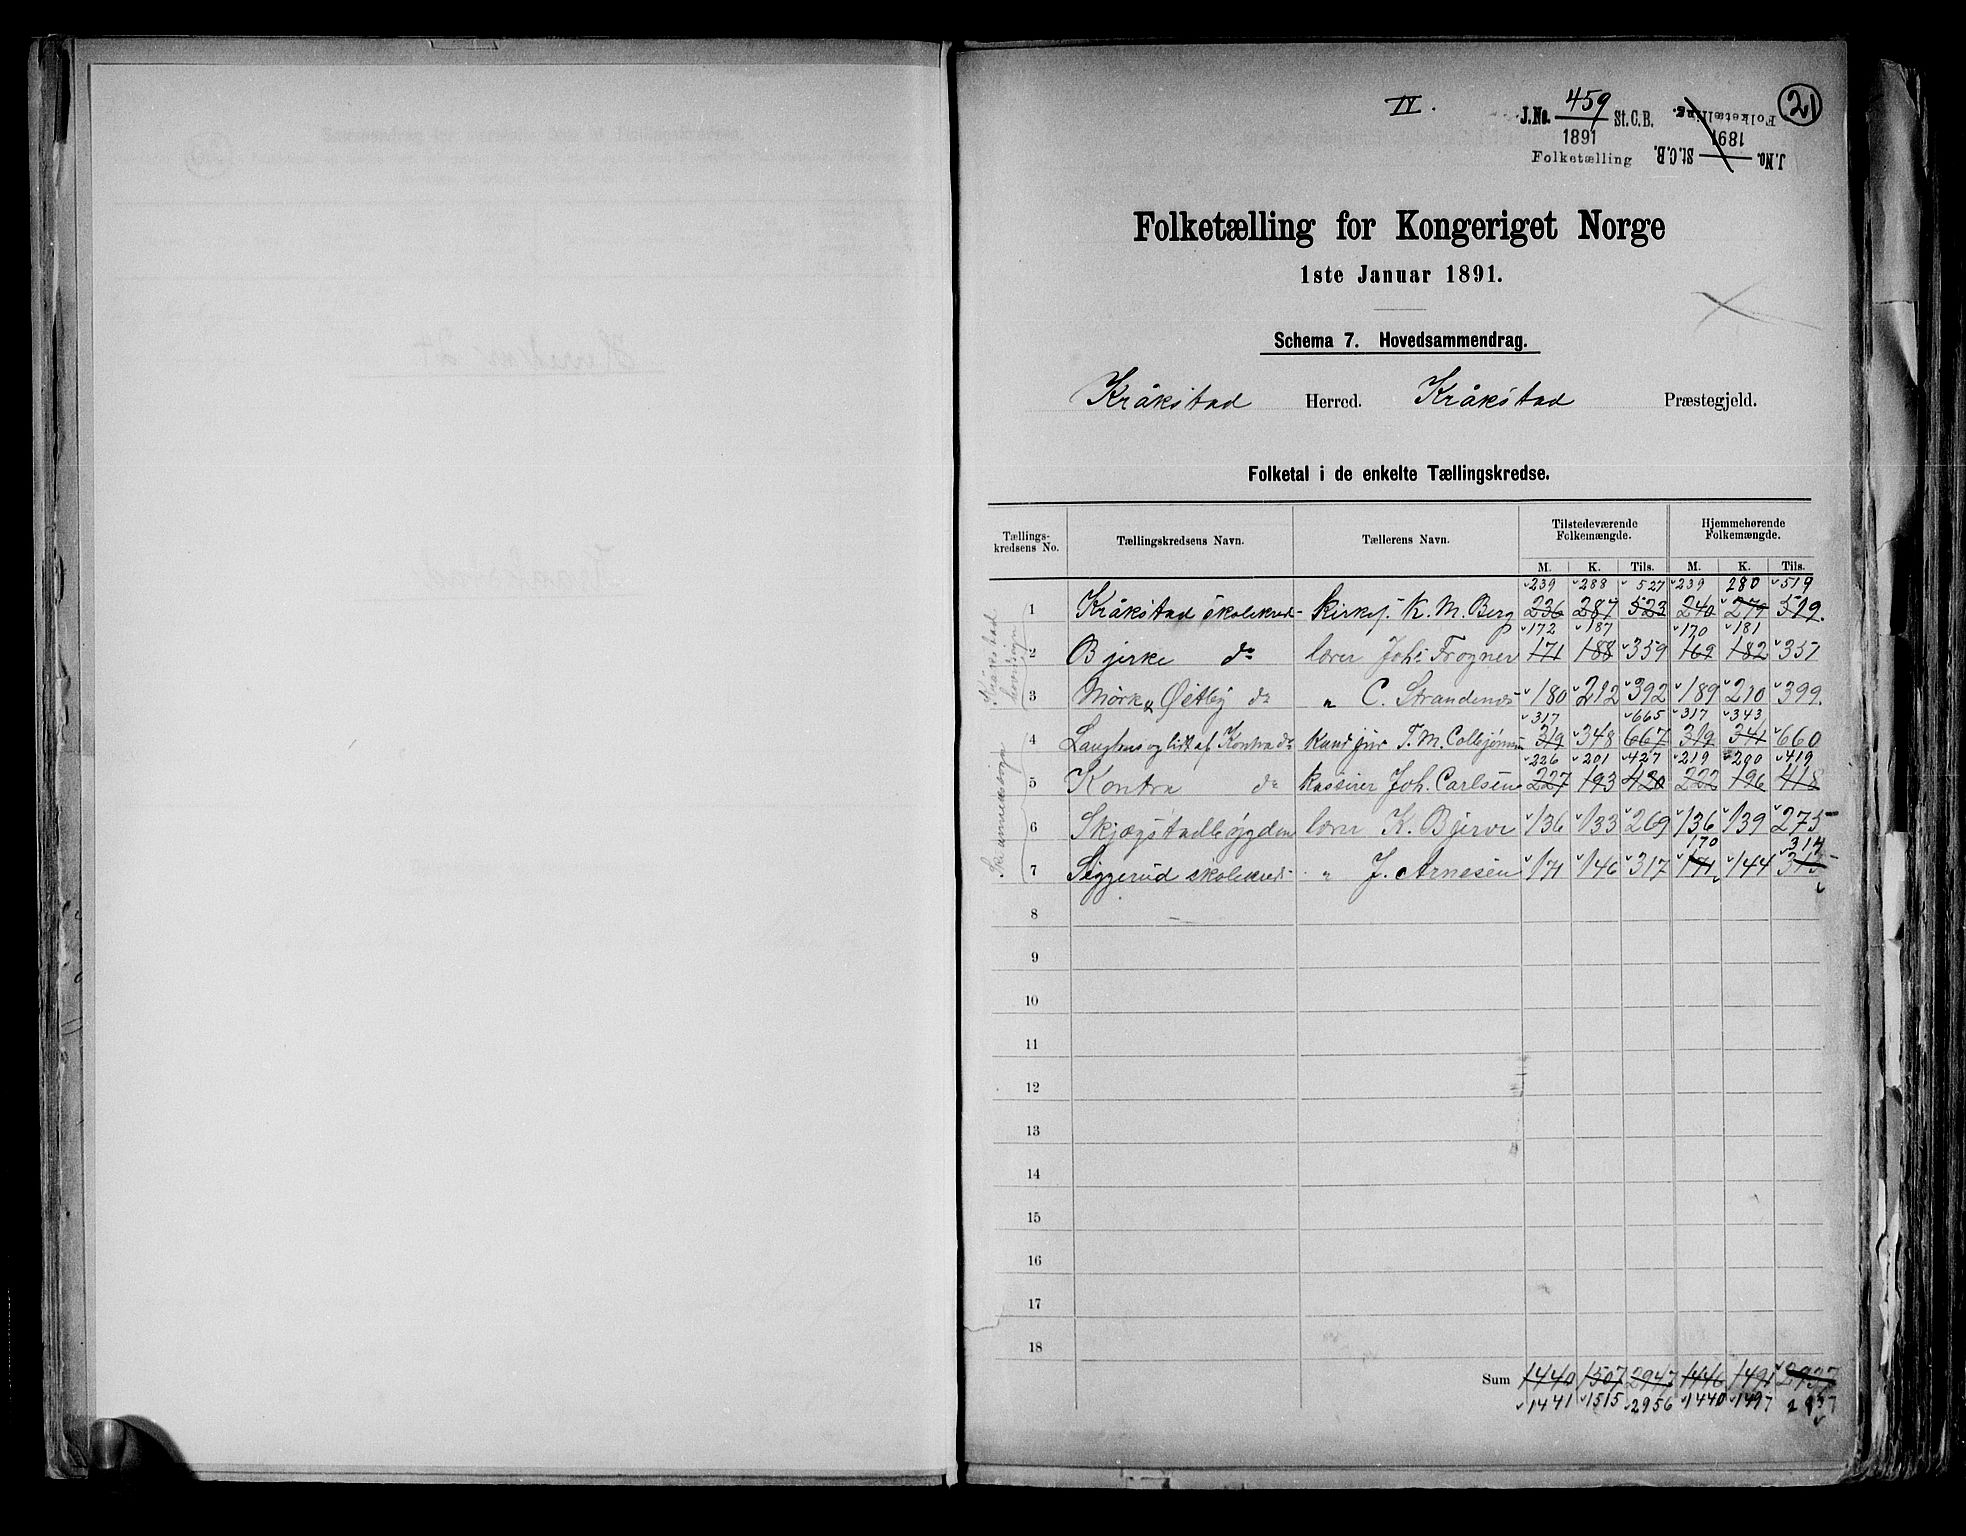 IV.
J.No. 459 St.C.B.
1891
Folketælling
J.No. St.C.B.
1891
Folketælling.
21
Folketælling for Kongeriget Norge
1ste Januar 1891.
Schema 7. Hovedsammendrag.
Kråkstad Herred. Kråkstad Præstegjeld.
Folketal i de enkelte Tællingskredse.
Tællings-kredsens No. Tællingskredsens Navn. Tællerens Navn. Tilstedeværende Folkemængde. Hjemmehørende Folkemængde.
M. K. Tils. M. K. Tils.
Kråkstad hovedsogn
239 288 527 239 280 519
1 Kråkstad skolekred- Kirkesj. K. M. Berg 236 287 523 240 279 519.
172 187 170 181
2 Bjerke do lærer Johs Frogner 171 188 359 169 182 351
3 Mørk & Østby do „ C. Strandenæs 180 212 392 189 210 399.
317 665 317 343
4 Langhus og lidt af Kontra do 319 348 667 319 341 660
226 201 427 219 200 419
5 Kontra do kasserer Joh. Carlsen 227 193 420 222 196 418
6 Skjægstadbøygden lærer K. Bjerve 136 133 269 136 139 275
170 314
7 Siggerud skolekred- „ J. Arnesen 171 146 317 171 144 315
8
9
10
11
12
13
14
15
16
17
18
Sum 1440 1507 2947 1446 1491 2937
1441 1515 2956 1440 1497 2937